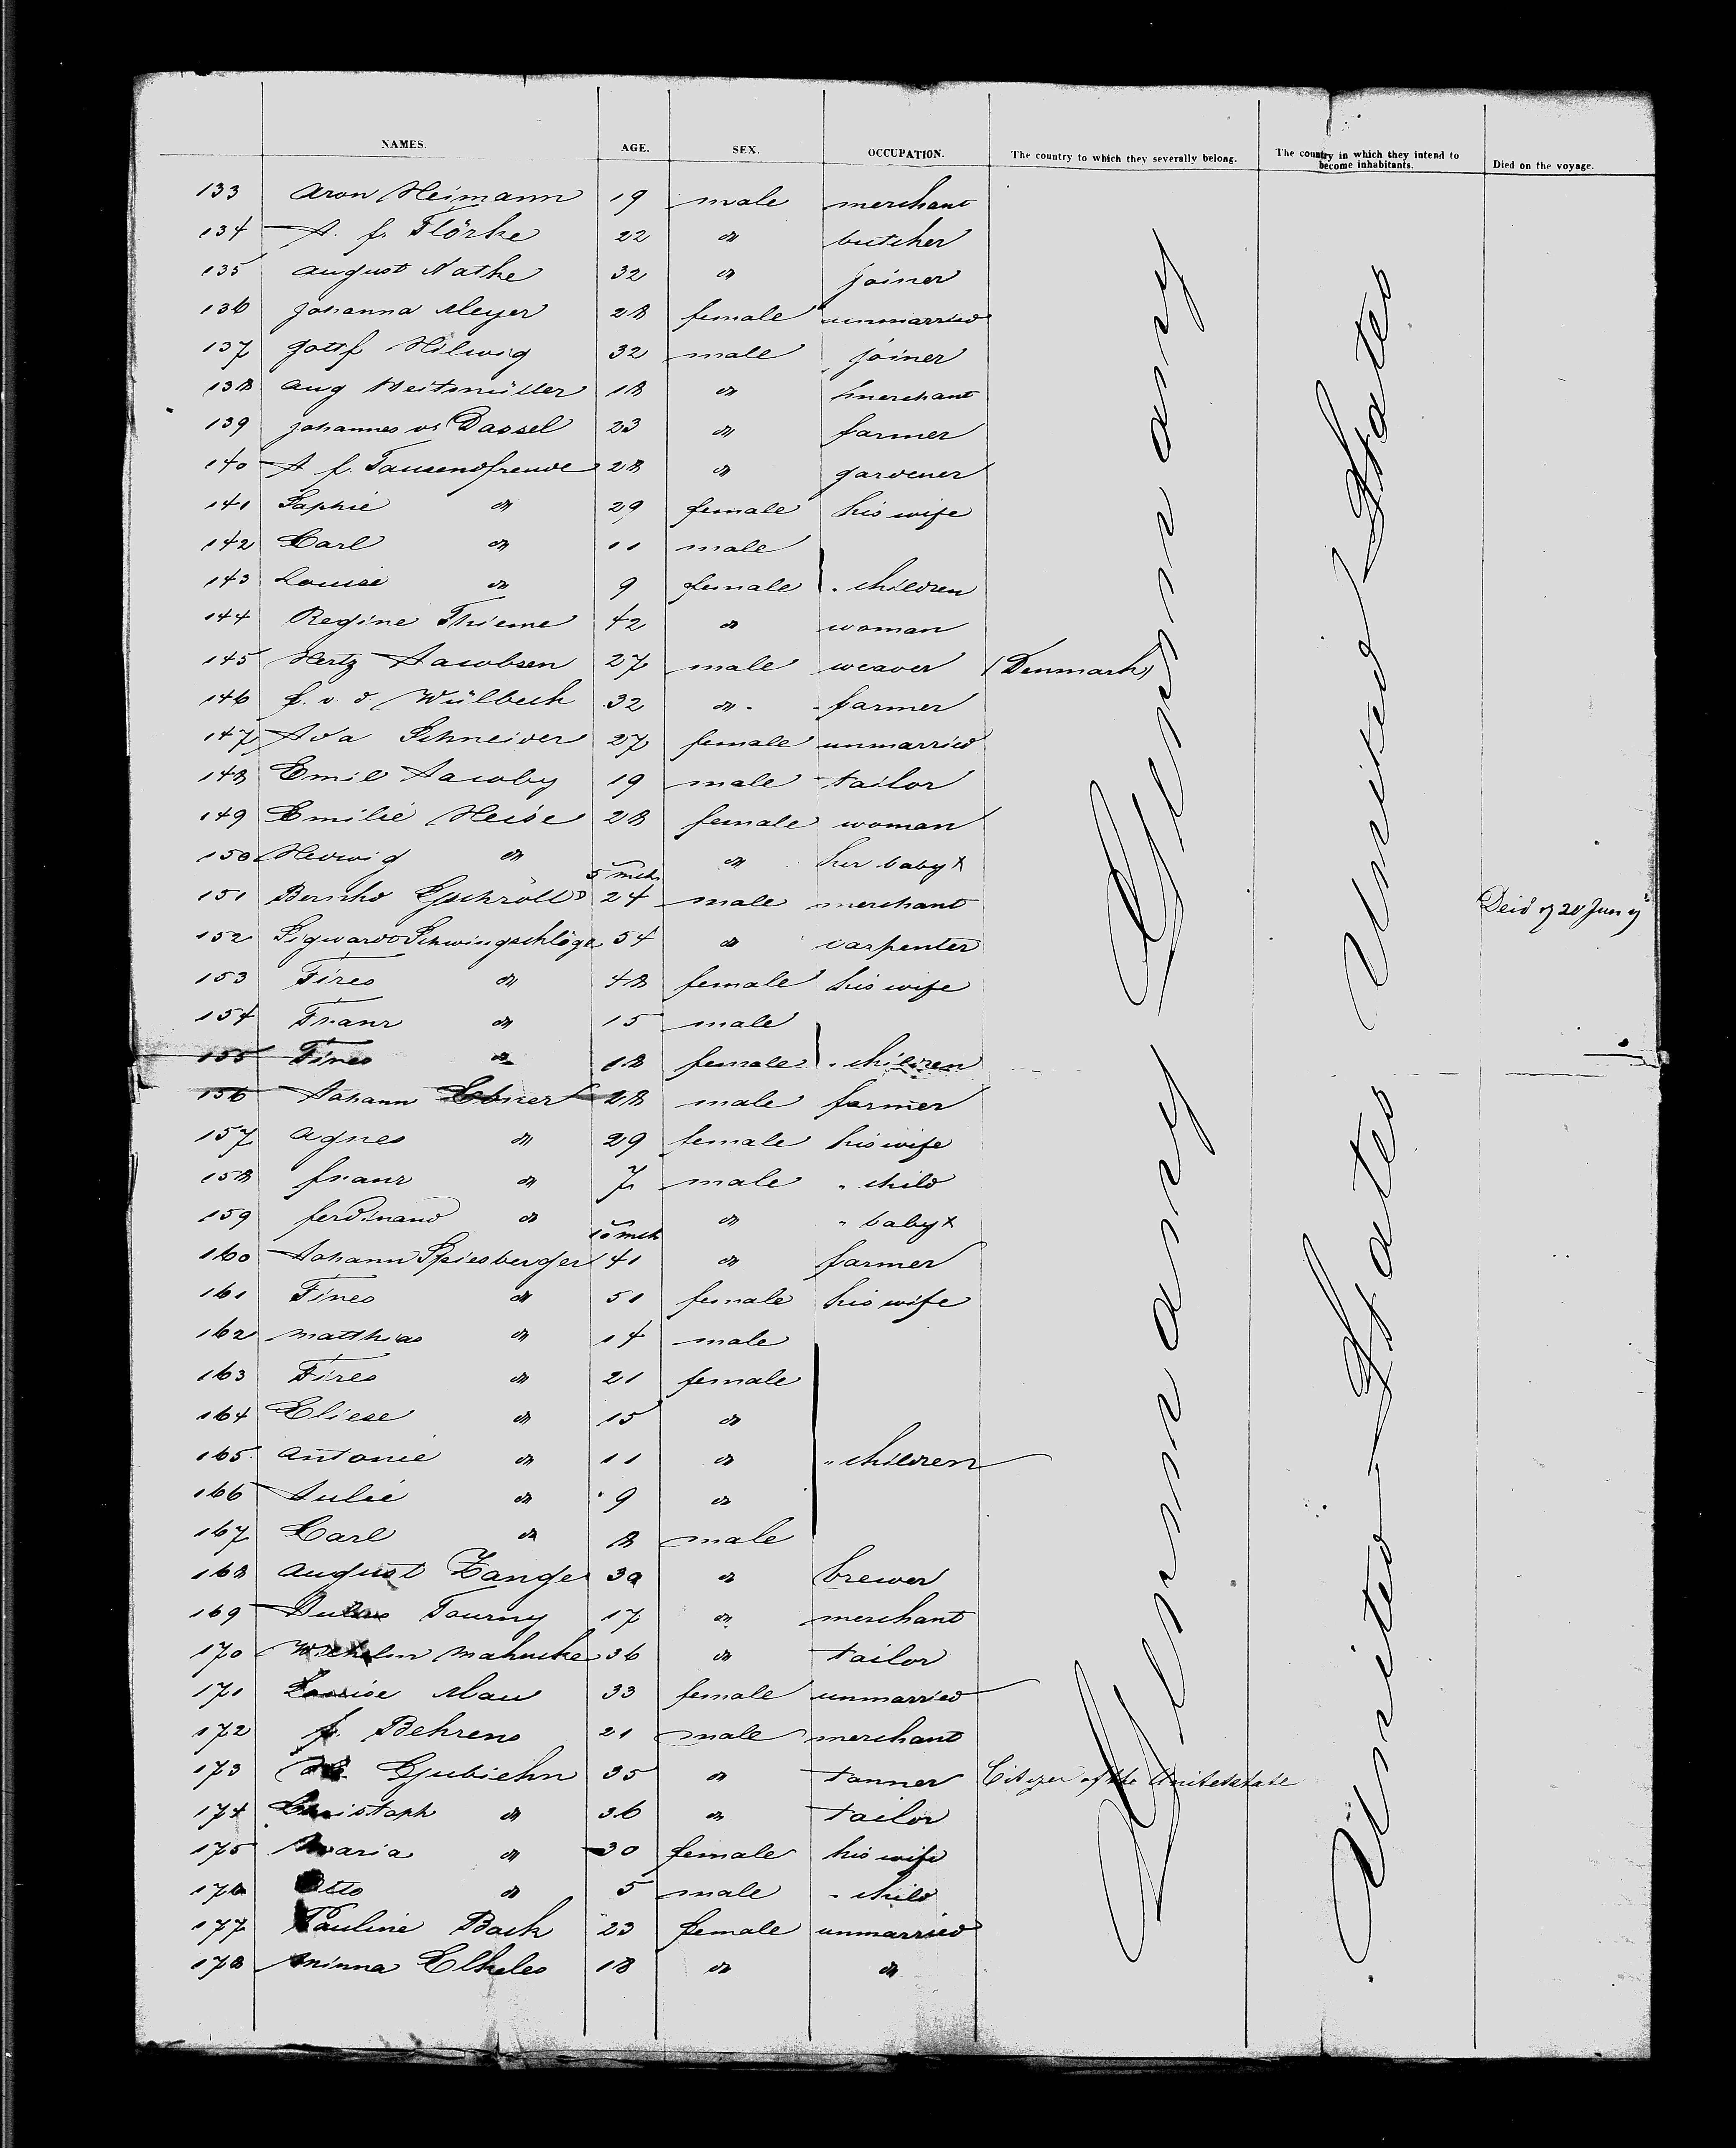 NAMES. AGE. SEX. OCCUPATION. The country to which they severally belong. The country in which they intend to become inhabitants. Died on the voyage.
133 Aron Heimann 19 male merchant
134 A. F. Flörke 22 do butcher
135 August Nathe 32 do joiner
136 Johanna Meyer 28 female unmarried
137 Gottf Hilwig 32 male joiner
138 Aug Weitmüller 18 do merchant
139 Johannes v. Dassel 23 do farmer
140 A F. Tausendfreude 28 do gardener
141 Sophie do 29 female his wife
142 Carl do 11 male
143 Louise do 9 female " children
144 Regine Thieme 42 do woman
145 Hertz Jacobsen 27 male weaver (Denmark)
146 F. v. d Wülbeck 32 do farmer
147 Ada Schneider 27 female unmarried
148 Emil Jacoby 19 male tailor
149 Emilie Heise 28 female woman
150 Hedwig do 5 mth do her baby x
151 24 male merchant
152 Sigward Schwingschlögl 54 do carpenter
153 Thres do 48 female his wife
154 Franz do 15 male
155 Thres do 18 female " children
156 Johann Ebner 28 male farmer
157 Agnes do 29 female his wife
158 Franz do 7 male " child
159 Ferdinand do 10 mth do " baby x
160 Johann Spiesberger 41 do farmer
161 Thres do 51 female his wife
162 Matthias do 14 male
163 Thres do 21 female
164 Eliese do 15 do
165 Antonie do 11 do " children
166 Julie do 9 do
167 Carl do 8 male
168 August Zange 30 do brewer
169 Tourny 17 do merchant
170 Wilhelm Mahncke 36 do tailor
171 Louise Mau 33 female unmarried
172 F. Behrens 21 male merchant
173 Gubiehn 35 do tanner Citizen of the Unitetstate
174 Christoph do 36 do tailor
175 Maria do 30 female his wife
176 Otto do 5 male " child
177 Pauline Back 23 female unmarried
178 Minna Elkeles 18 do do
Germany Germany
United States United States